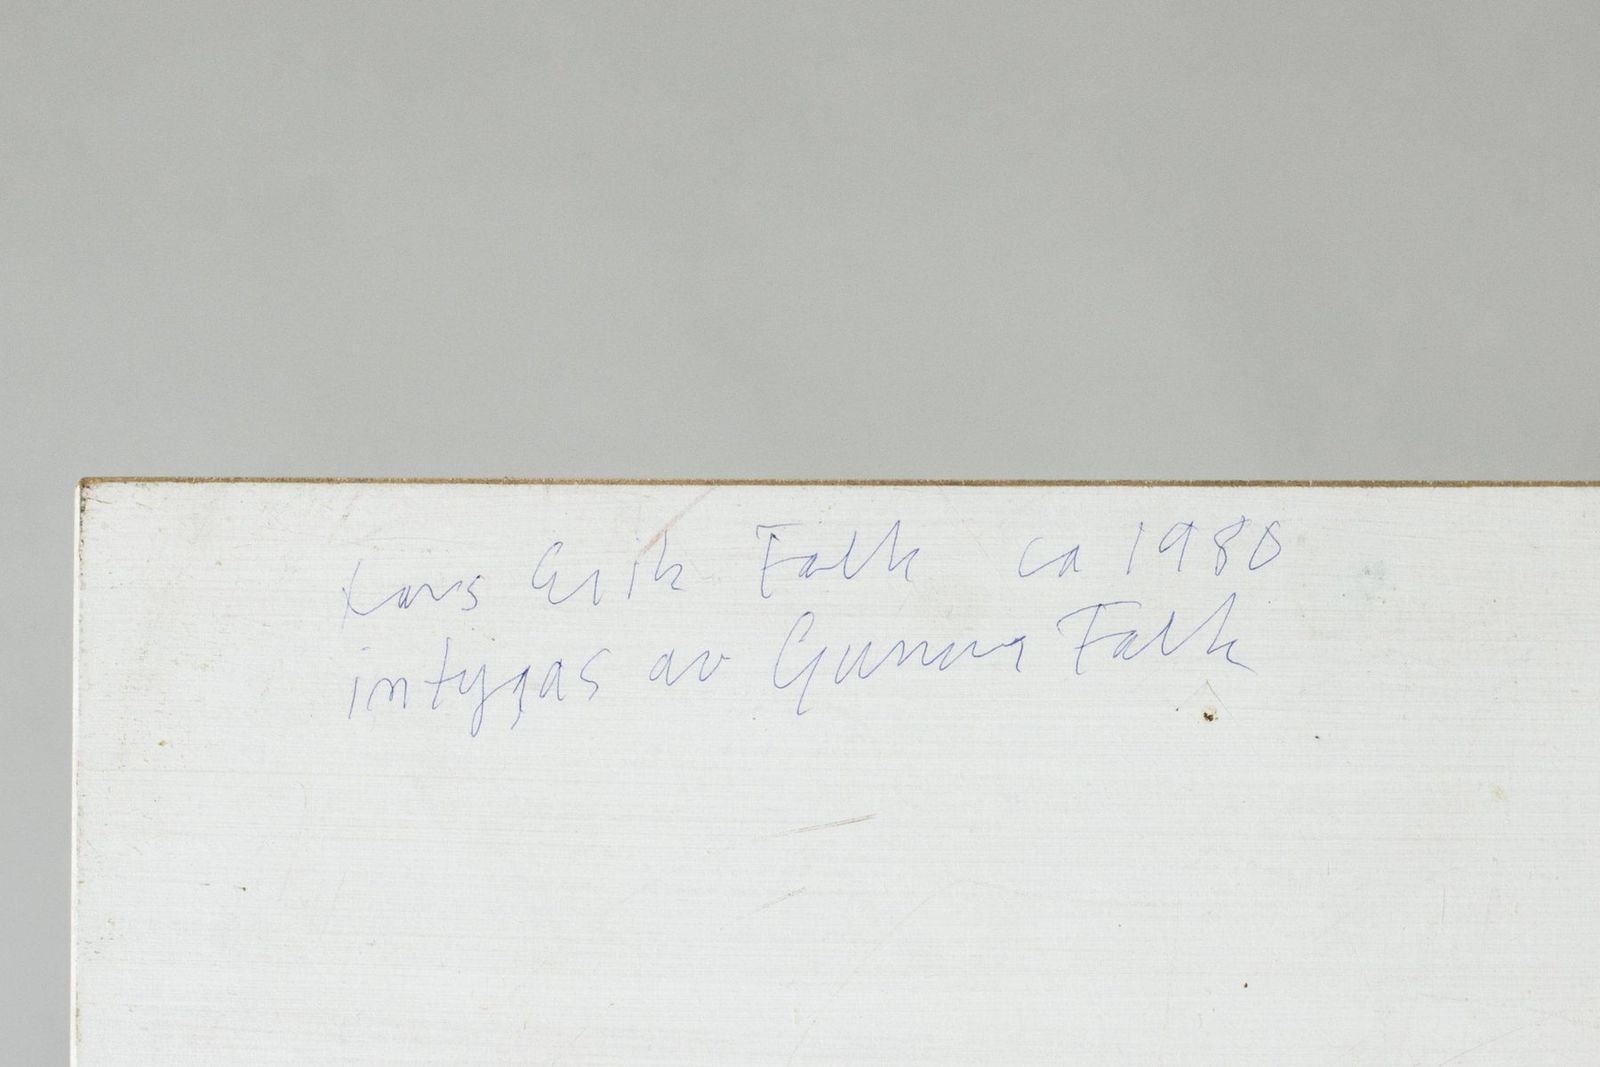 Lars Erik Falk ca 1980
intygas av Gunnar Falk